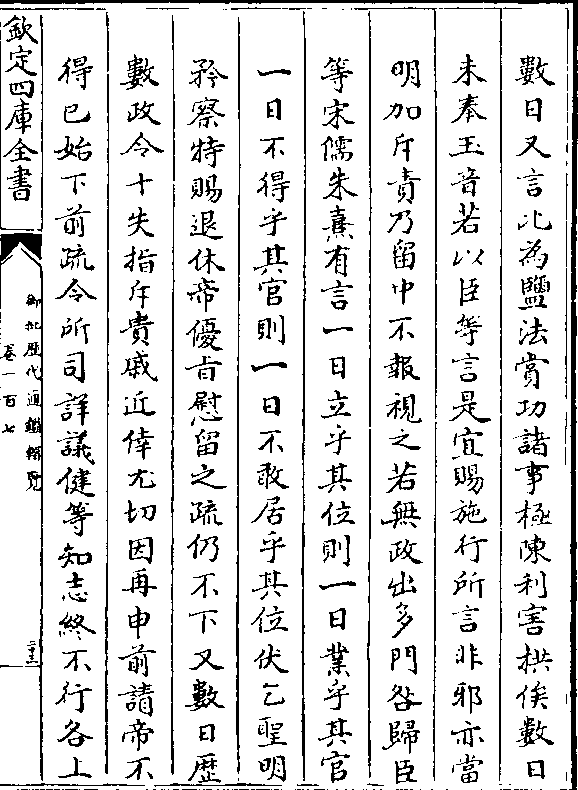 數日又言此為鹽法賞功諸事極陳利害拱俟數日
未奉玉音若以臣等言是宜賜施行所言非邪亦當
明加斥責乃留中不報視之若無政出多門咎歸臣
等宋儒朱熹有言一日立乎其位則一日業乎其官
一日不得乎其官則一日不敢居乎其位伏乞聖明
矜察特賜退休帝優旨慰留之疏仍不下又數日歴
數政令十失指斥貴戚近倖尤切因再申前請帝不
得已始下前疏令所司詳議健等知志終不行各上
欽定四庫全書
御批歴代通鑑輯覽
卷一百七
二十三